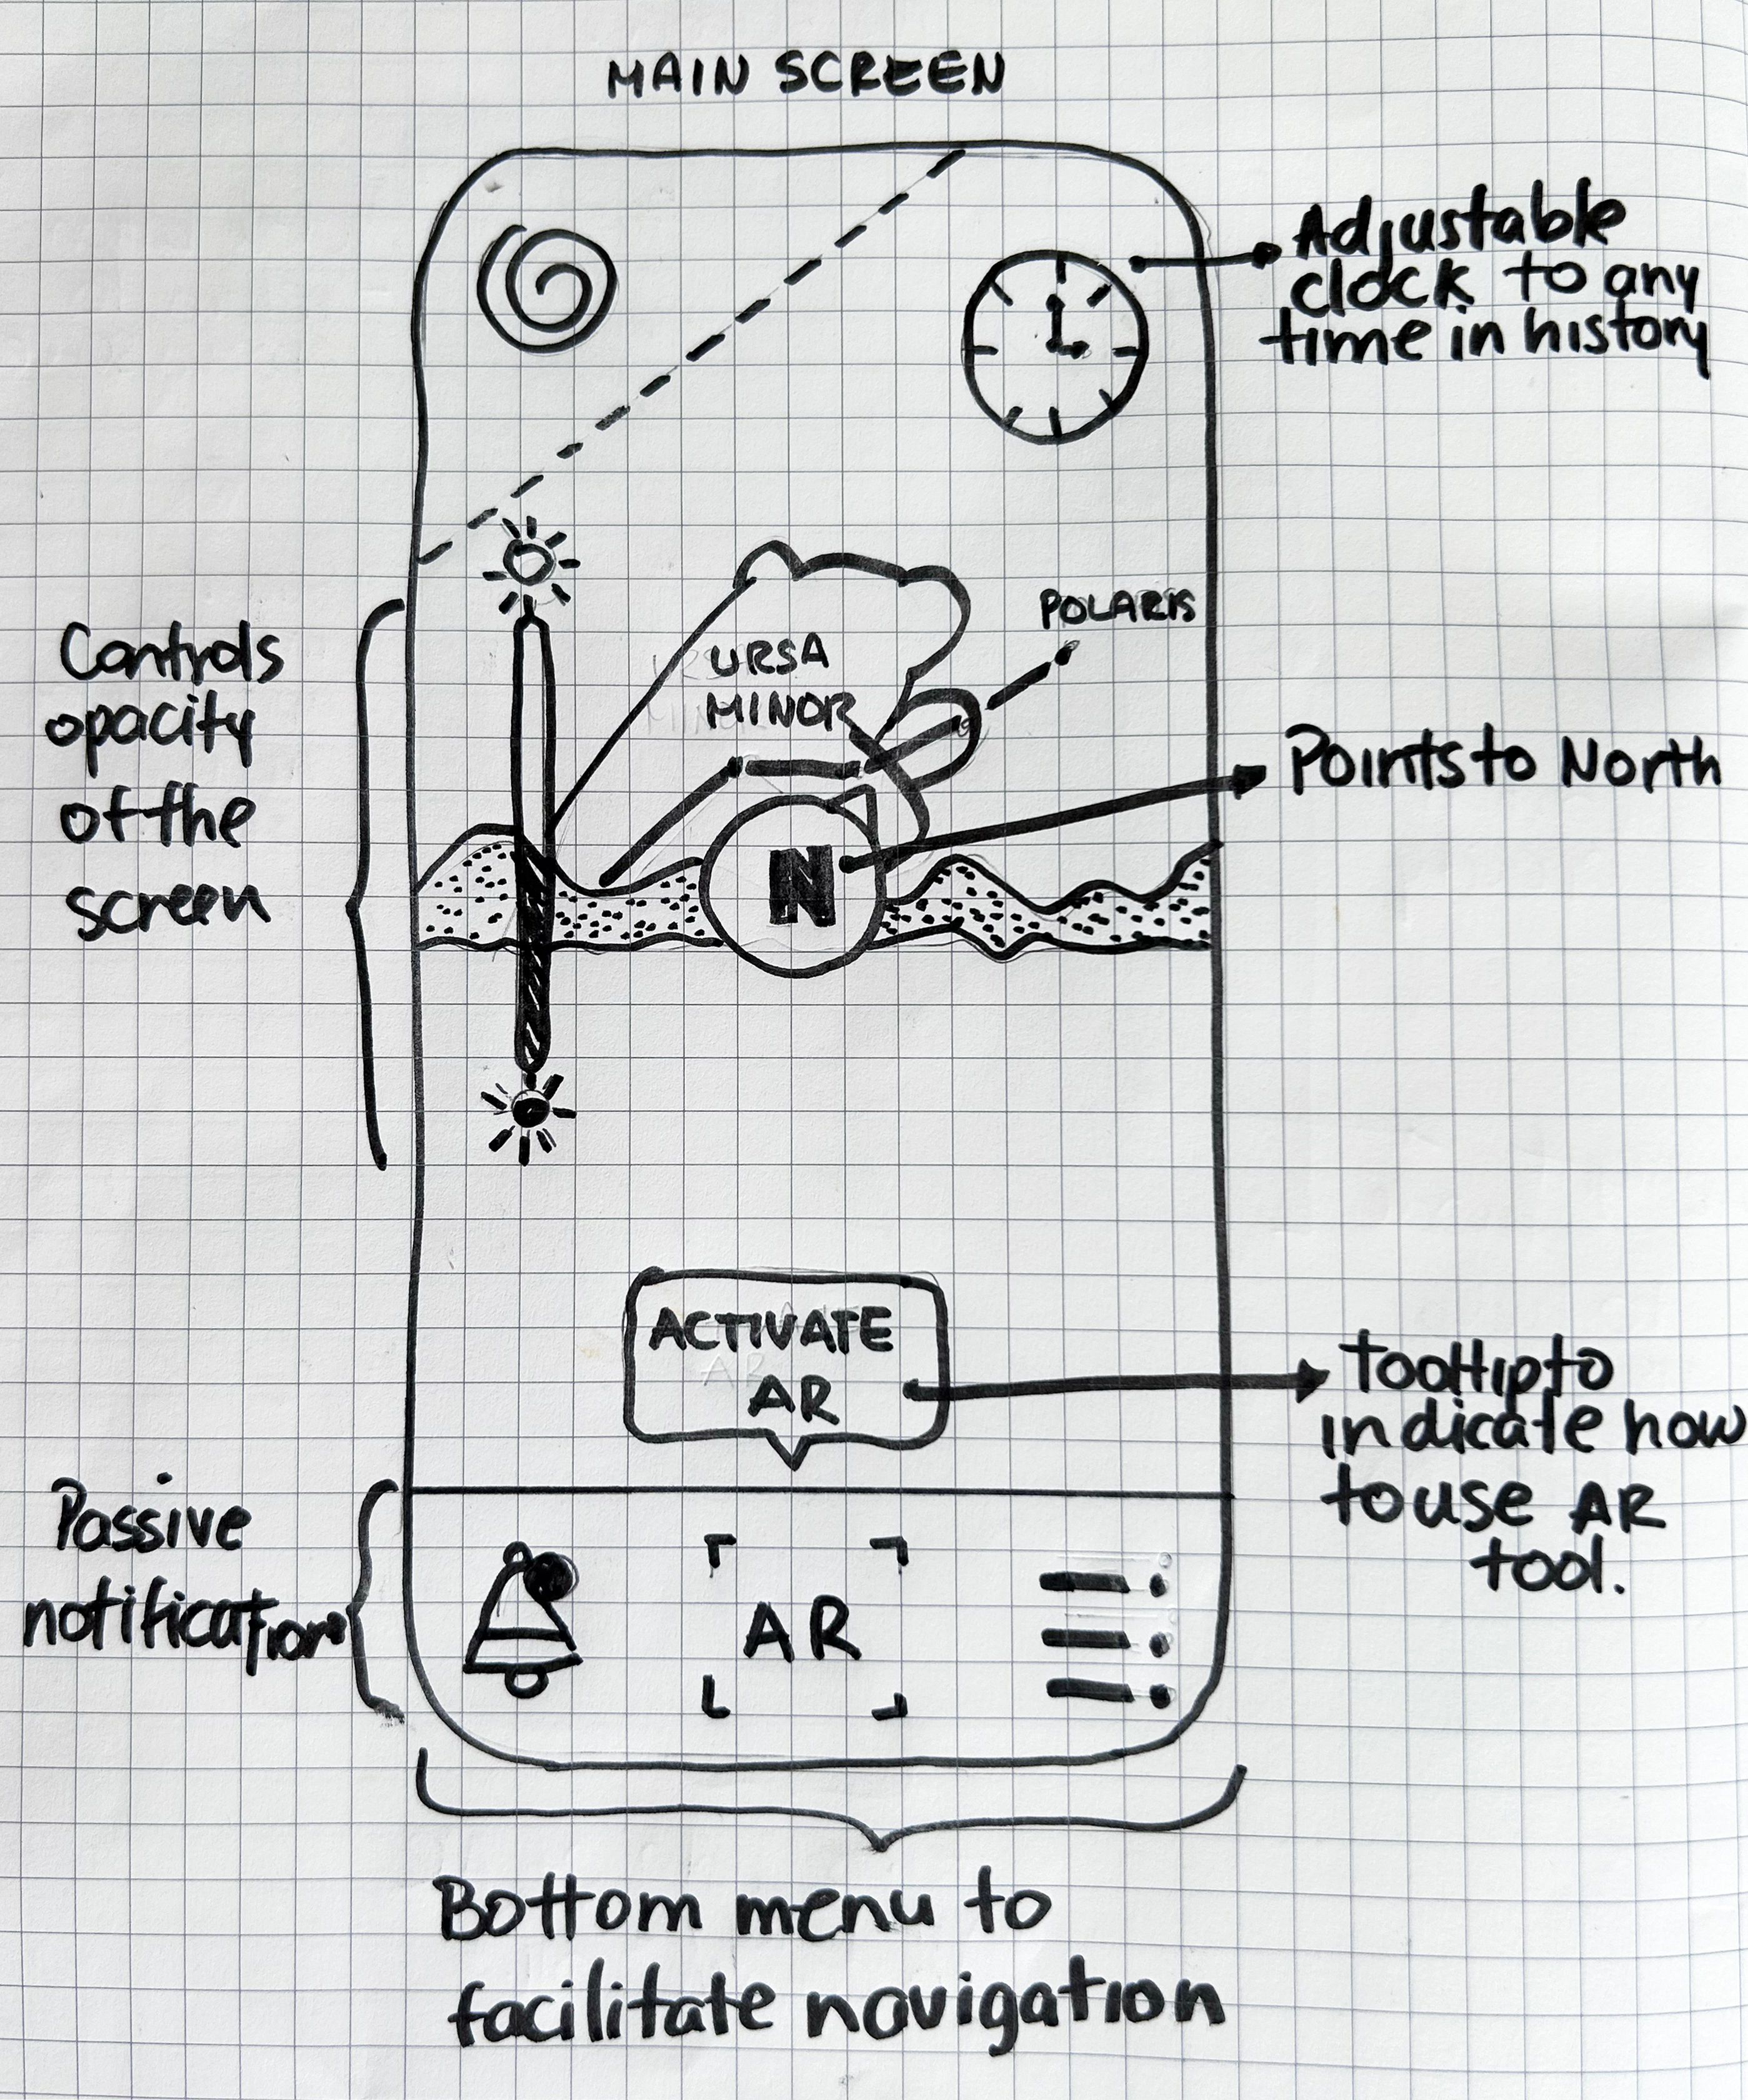 MAIN SCREEN
Adjustable
clock to any
time in history
Controls
opacity
of the
screen
URSA
MINOR
POLARIS
Points to North
N
ACTIVATE
AR
Tooltip to
indicate how
to use AR
tool.
Passive
notification
AR
Bottom menu to
facilitate navigation